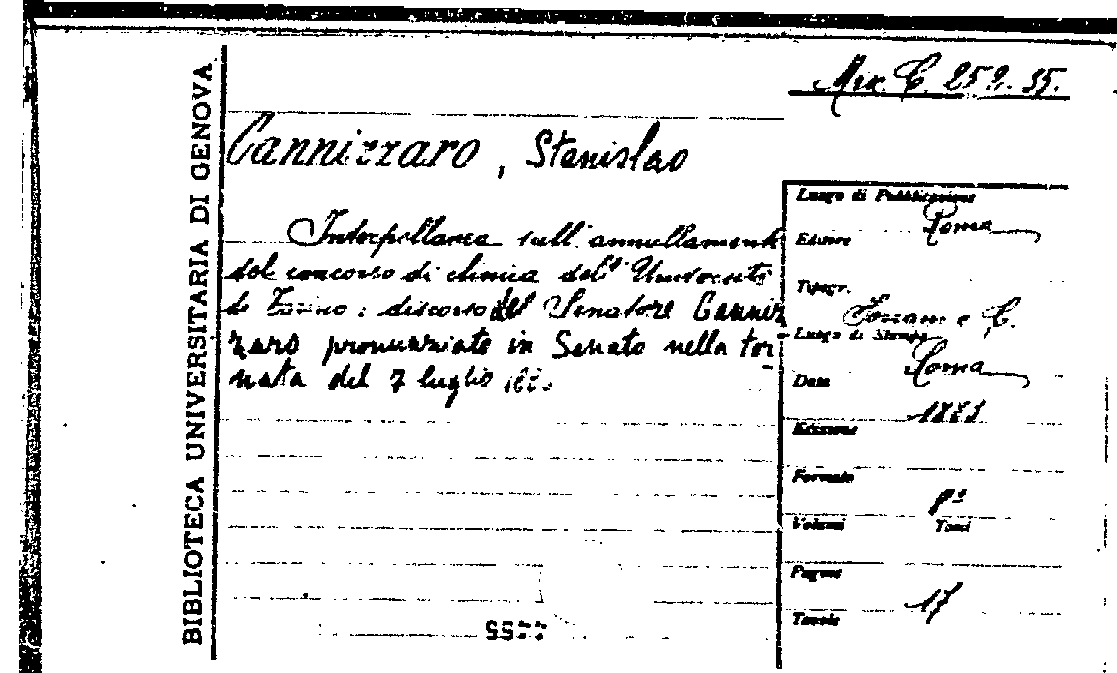 BIBLIOTECA UNIVERSITARIA DI GENOVA
Misc. C. 252. 35.
Cannizzaro, Stanislao
Interpellanza sull'annullamento
del concorso di clinica dell'Università
di Torino: discorso del Senatore Canniz
zaro pronunziato in Senato nella tor
nata del 7 luglio
Luogo di Pubblicazione
Roma
Editore
Tipogr.
Forzani e C.
Luogo di Stampa
Roma
Data
Edizione
Formato
8º
Volumi Tomi
Pagine
17
Tavole